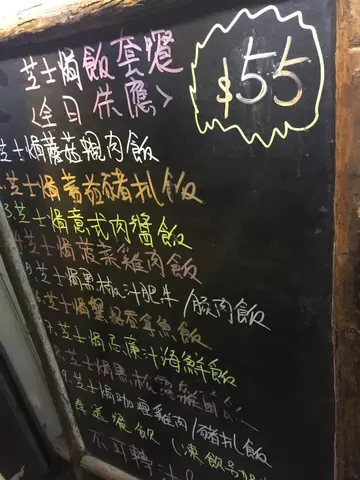 芝士焗飯套餐
$55
<全日供應>
芝士焗蘑菇雞肉飯
2.芝士焗蕃茄豬扒飯
3.芝士焗意式肉醬飯
4.芝士焗菠菜雞肉飯
5.芝士焗黑椒汁肥牛/腸肉飯
6.芝士焗蟹 吞拿魚飯
7.芝士焗忌廉汁海鮮飯
8.芝士焗黑松露雞 飯
9.芝士焗咖喱雞肉/豬扒飯
套送餐飲(凍飲
不可轉